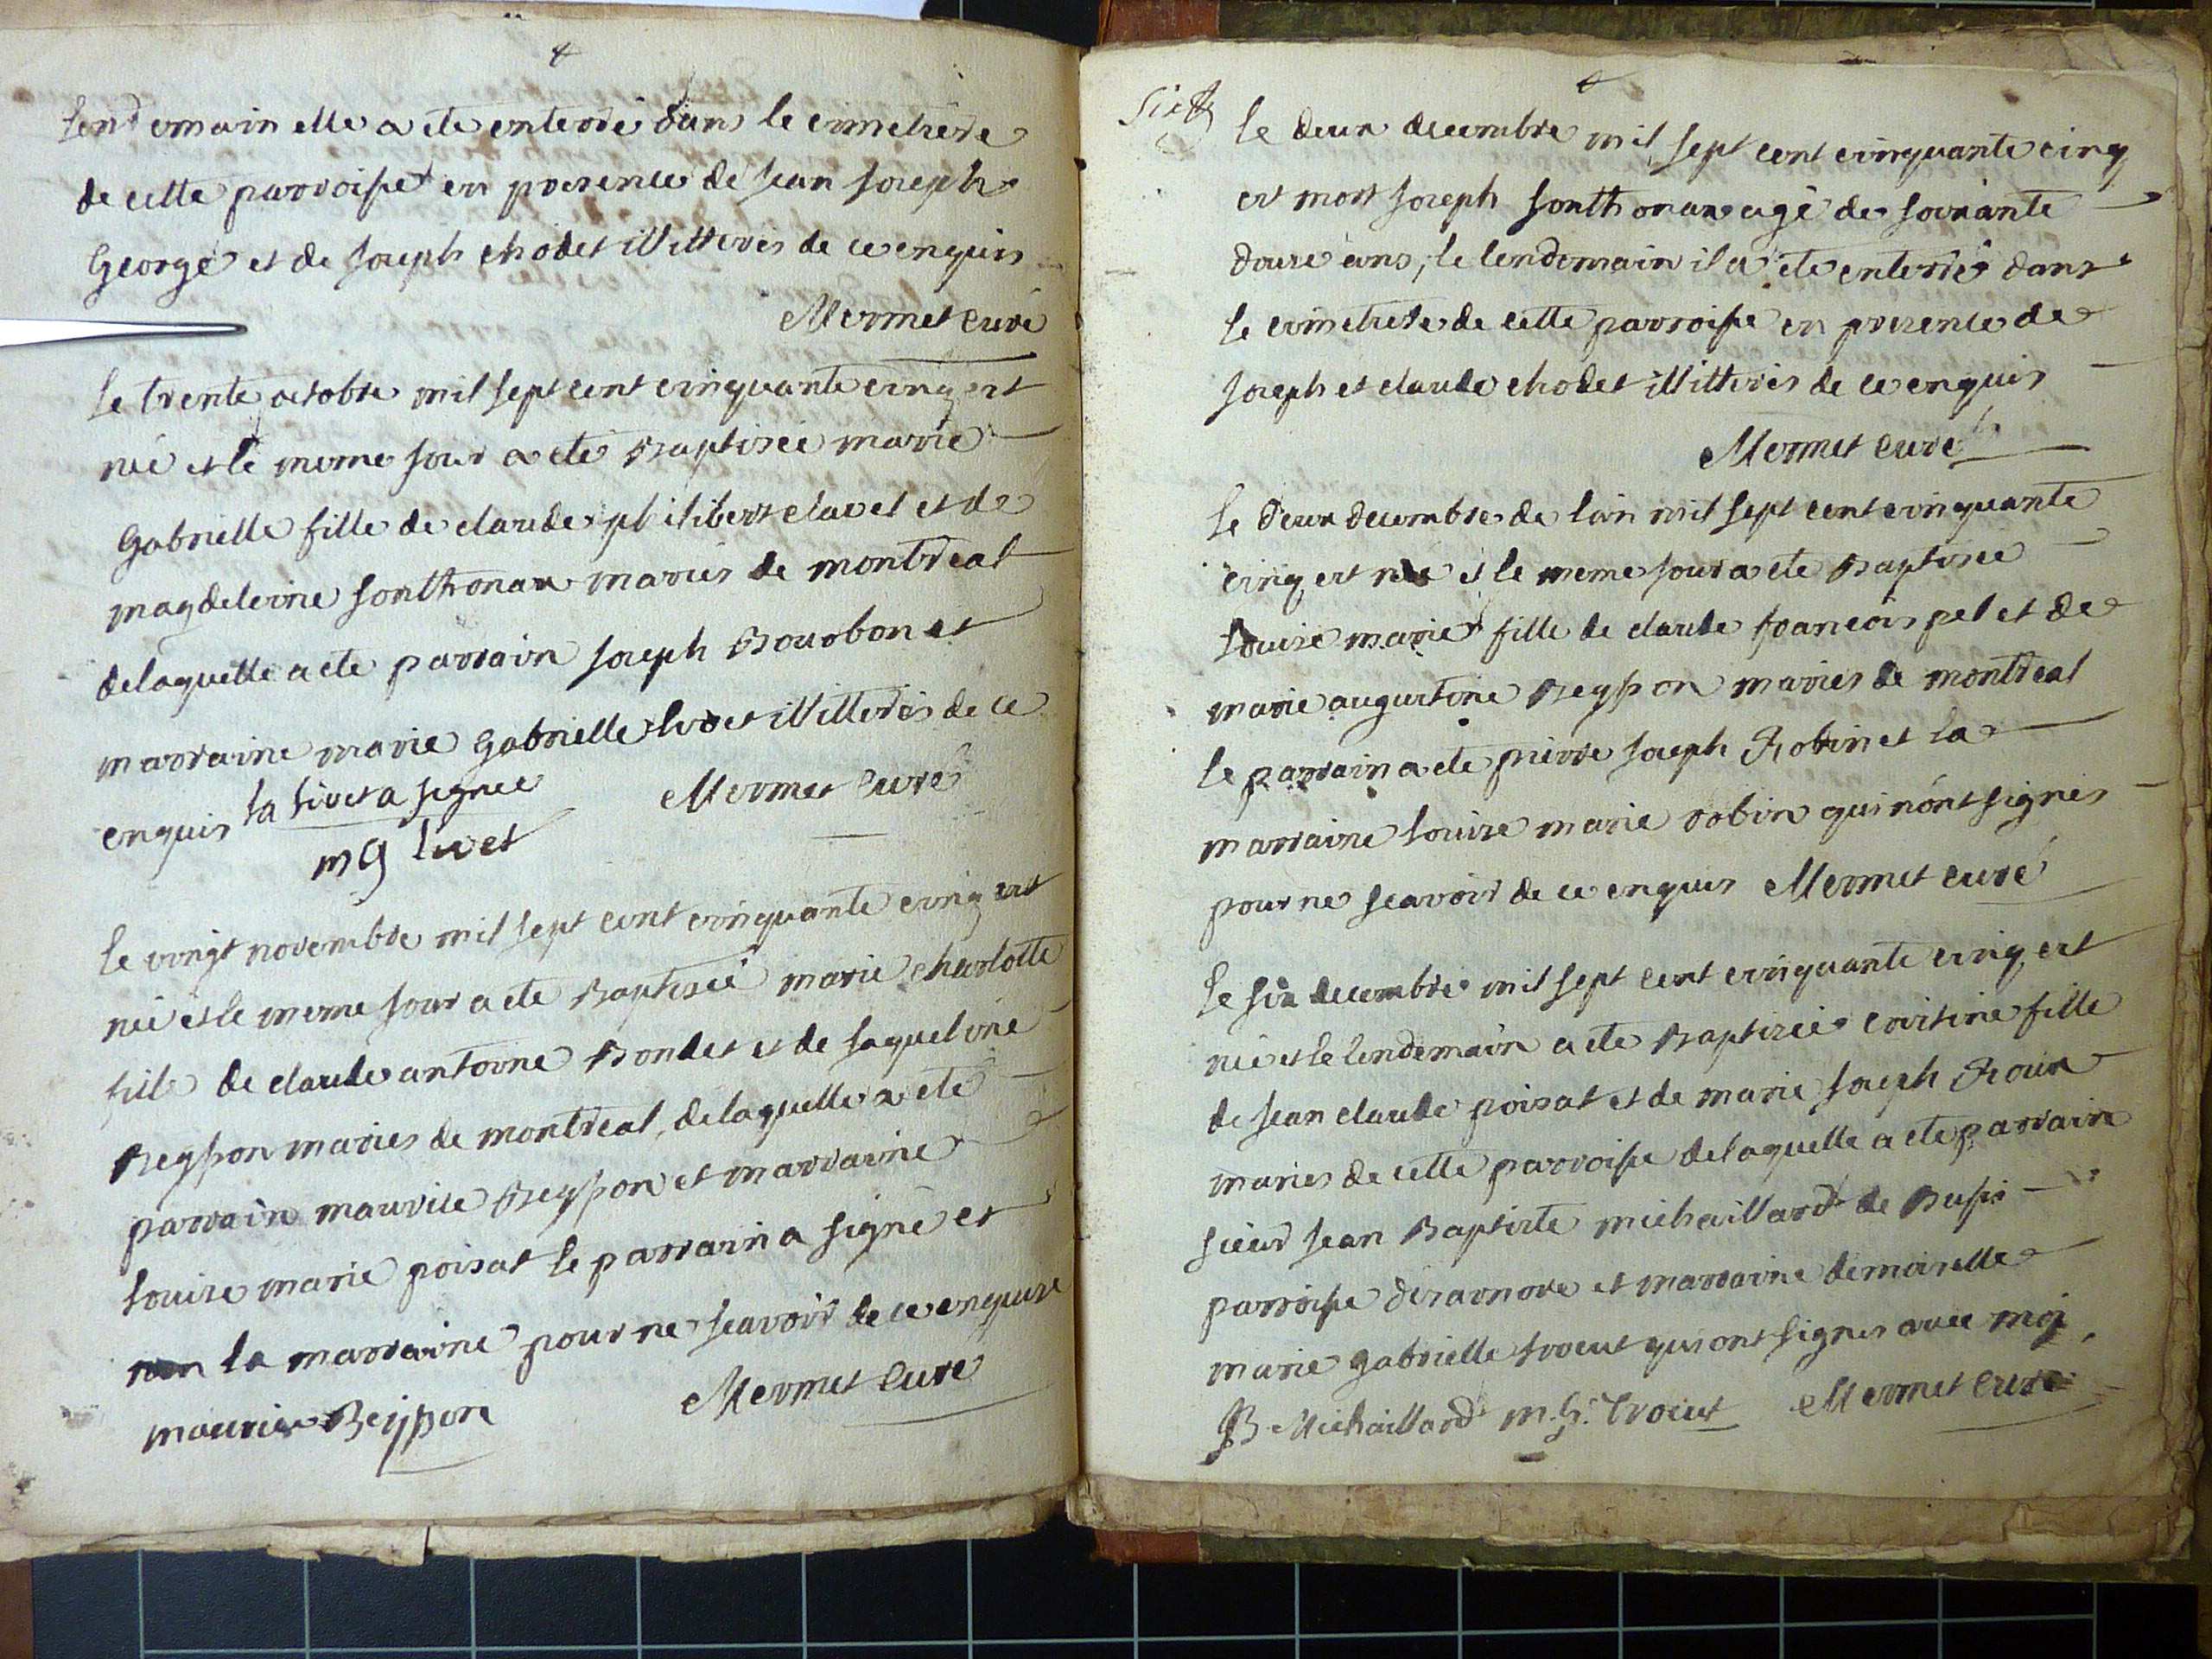 lendemain elle a ete enterré dans le cimetiere
de cette parroisse en presence de Jean Joseph
George et de Joseph chodet illitterés de ce enquis
Mermet curé
le trente octobre mil sept cent cinquante cinq est
née et le meme jour a ete Baptisée marie
Gabrielle fille de claude philibert clavel et de
magdeleine sonthonax mariés de montreal
delaquelle a ete parrain Joseph Bourbon et
marraine marie Gabrielle livet illitterés de ce
enquis la livet a signée Mermet curé
mg livet
le vingt novembre mil sept cent cinquante cinq est
née et le meme jour a ete Baptisée marie charlotte
fille de claude antoine Bondet et de Jaqueline
Reypon mariés de montreal, delaquelle a ete
parrain maurice Reypon et marraine
Louise marie poisat le parrain a signé et
non la marraine pour ne scavoir de ce enquise
maurice Beyson Mermet curé
Sixte
le deux decembre mil sept cent cinquante cinq
est mort Joseph sonthonax agé de soixante
douze ans, le lendemain il a ete enterré dans
le cimetiere de cette parroisse en presence de
Joseph et claude chodet illitterés de ce enquis
Mermet curé
le deux decembre de l'an mil sept cent cinquante
cinq est née et le meme jour a ete Baptisée
Louise marie fille de claude francois pel et de
marie augustine Reypon mariés de montreal
le parrain a ete pierre Joseph Robin et la
marraine Louise marie robin qui n'ont signés
pour ne scavoir de ce enquis Mermet curé
le six decembre mil sept cent cinquante cinq est
née et le lendemain a ete Baptizée cristine fille
de Jean claude poisat et de marie Joseph Roux
mariés de cette parroisse delaquelle a ete parrain
sieur Jean Baptiste michaillard de
parroisse disarnore et marraine demoiselle
marie gabrielle trocut qui ont signés avec moi
JB Michaillard m. g. Trocut Mermet curé